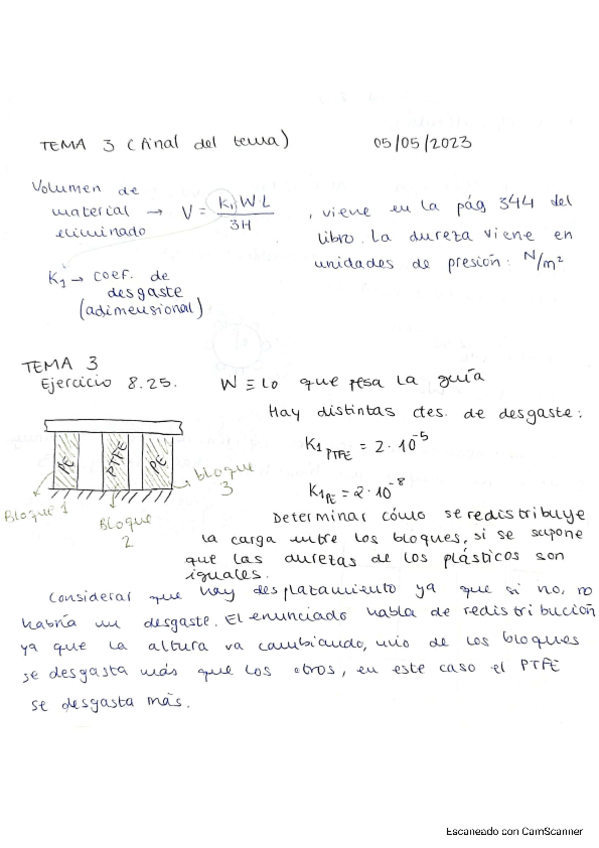 TEMA 3 (final del tema) 05/05/2023
Volumen de
material → V = K₁WL / 3H , viene en la pág 344 del
eliminado
libro. La dureza viene en
unidades de presión: N/m²
K₁ → coef. de
desgaste
(adimensional)
TEMA 3
Ejercicio 8.25. W ≡ lo que pesa la guía
Hay distintas ctes. de desgaste:
K₁ PTFE = 2·10⁻⁵
K₁ PE = 2·10⁻⁸
PE PTFE PE
Bloque 1
Bloque 2
bloque 3
Determinar cómo se redistribuye
la carga entre los bloques, si se supone
que las durezas de los plásticos son
iguales.
Considerar que hay desplazamiento ya que si no, no
habría un desgaste. El enunciado habla de redistribución
ya que la altura va cambiando, uno de los bloques
se desgasta más que los otros, en este caso el PTFE
se desgasta más.
Escaneado con CamScanner